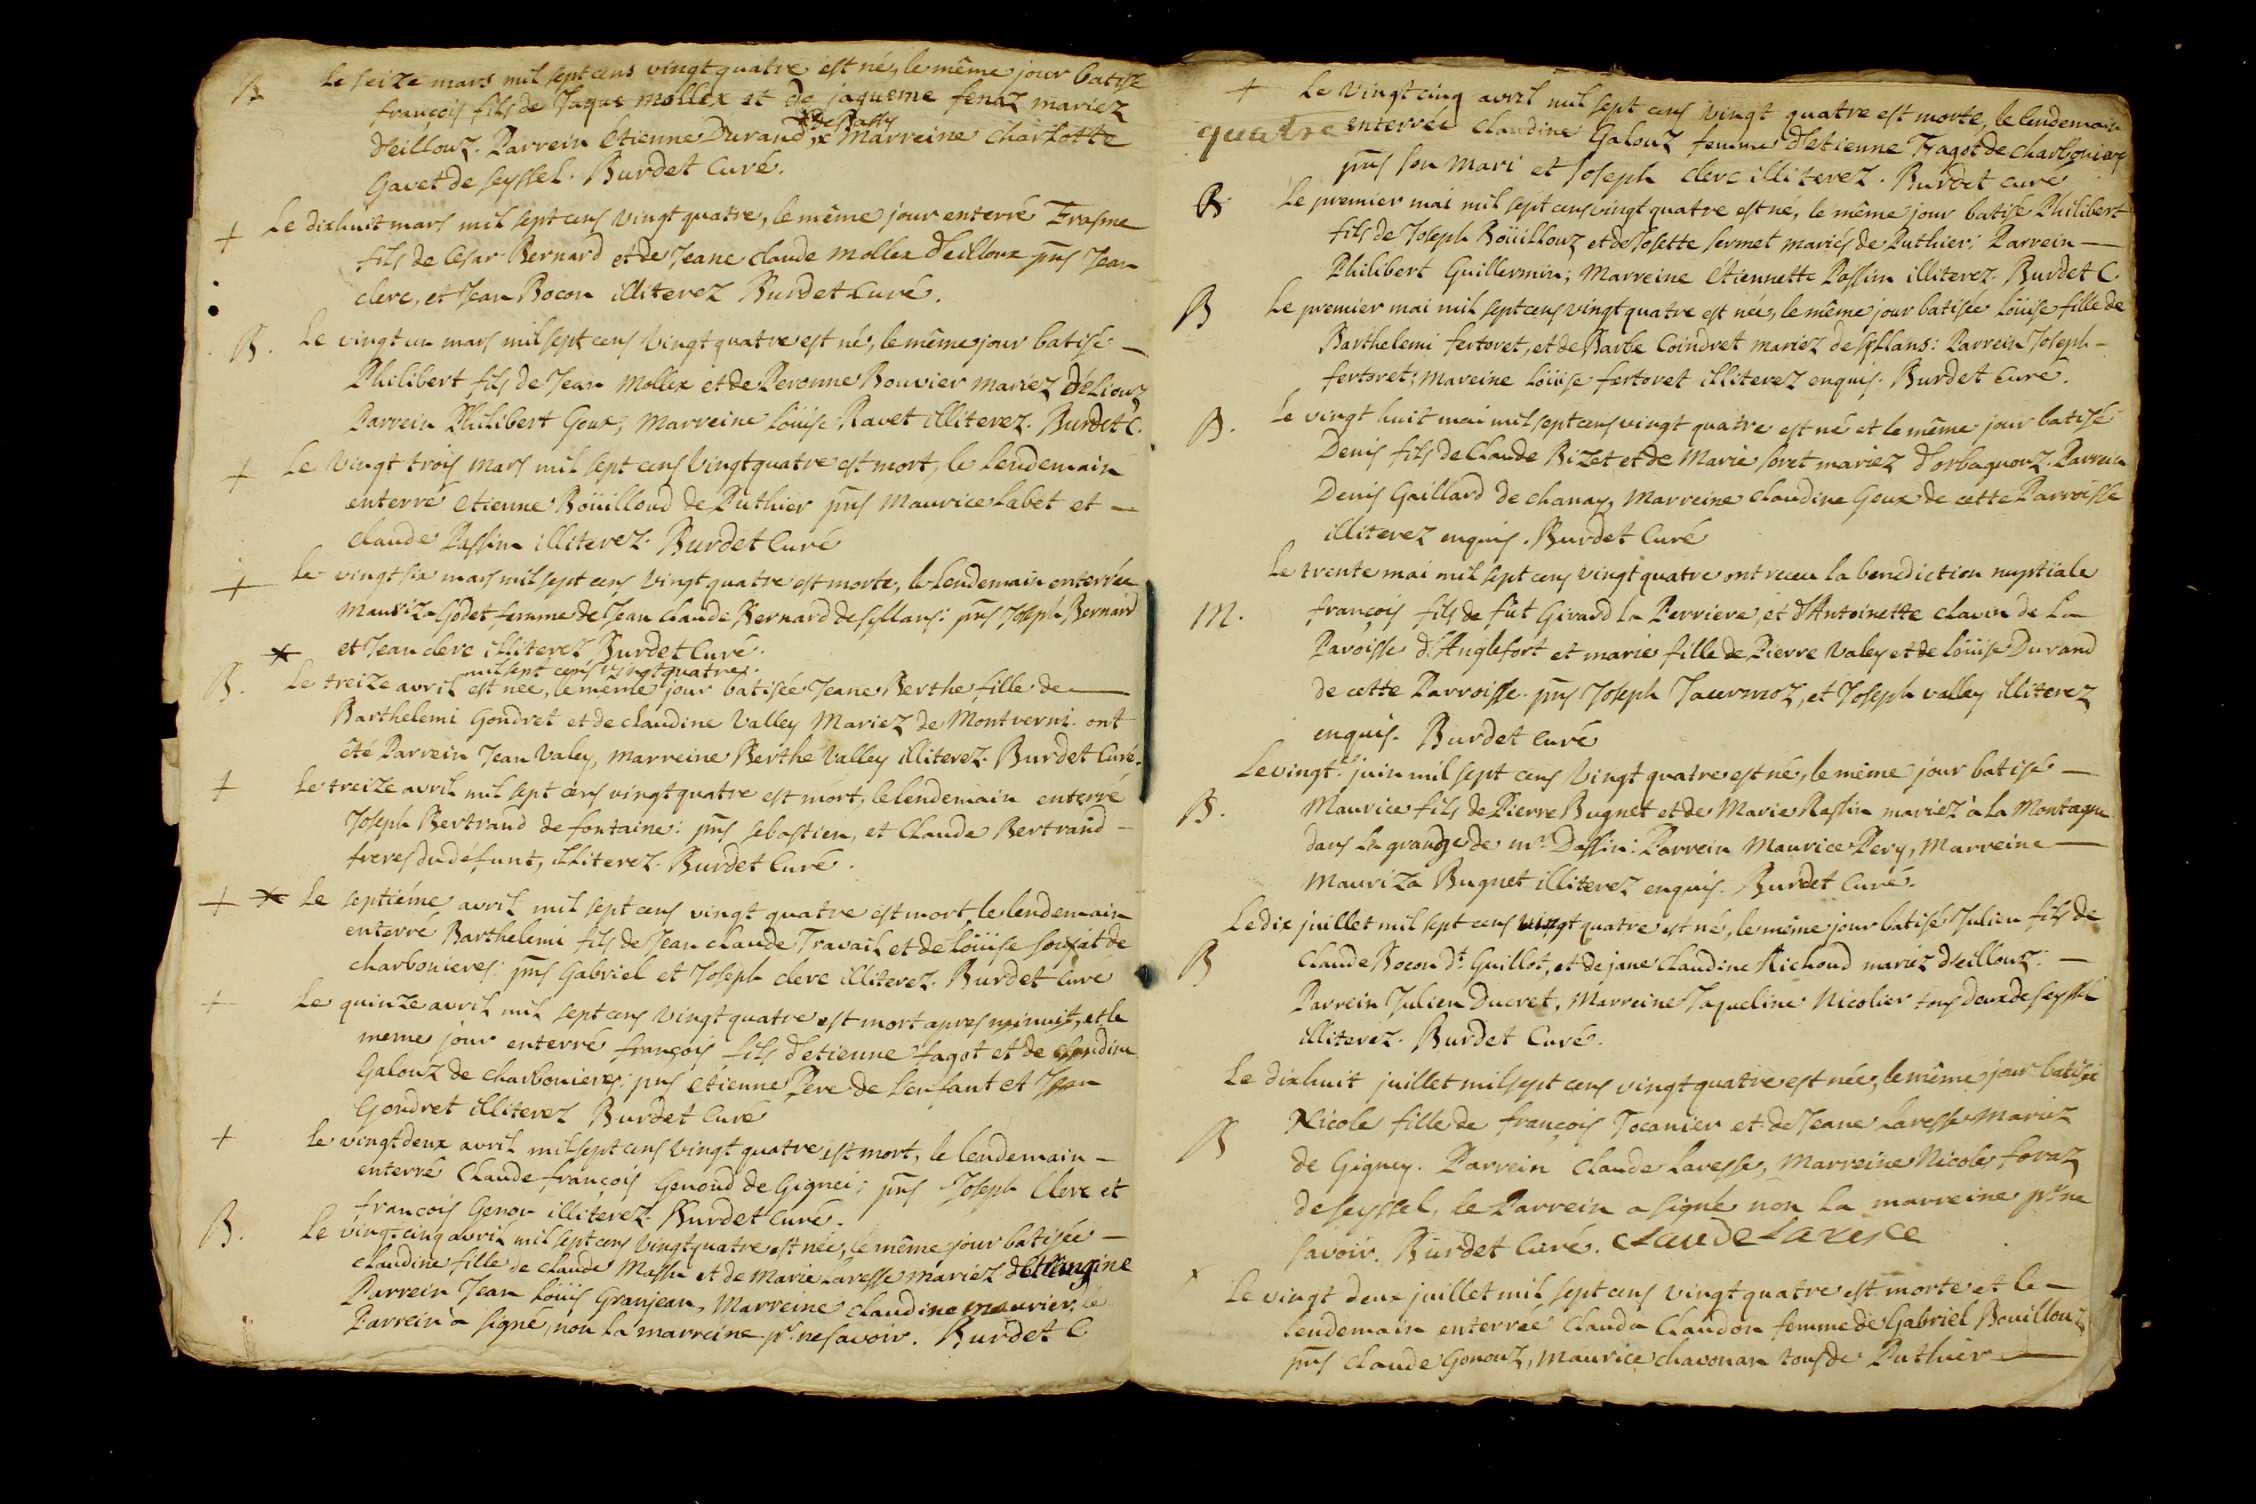 B Le seize mars mil sept cens vingt quatre est né, le même jour batisé
françois fils de Jaque Mollex et de jaqueme fenaz mariez
* de Bassy
d'eillouz. Parrein Etienne Durand,* Marreine Charlotte
Gavet de seyssel. Burdet Curé.
+ Le dixhuit mars mil sept cens vingt quatre, le même jour enterré Erasme
fils de Cesar Bernard et de Jeane claude Mollex d'eilloux pñs Jean
clerc, et Jean Bocon illiterez Burdet Curé.
B. Le vingt un mars mil sept cens vingt quatre est né, le même jour batisé —
Philibert fils de Jean Mollex et de Peronne Bouvier mariez d'éliouz
Parrein Philibert Goux, Marreine Loüise Ravet illiterez. Burdet C.
+ Le vingt trois mars mil sept cens vingt quatre est mort, le lendemain
enterré etienne Boüilloud de Puthier pñs Maurice Labet et —
claude Passin illiterez. Burdet Curé
+ Le vingt six mars mil sept cens vingt quatre est morte, le lendemain enterrée
Mauriza Godet femme de Jean claude Bernard de syllans: pñs Joseph Bernard
* et Jean clerc illiterez Burdet Curé.
mil sept cens vingt quatre.
B. Le treize avril est née, le même jour batisée Jeane Berthe fille de —
Barthelemi Gondret et de claudine Valley Mariez de Montverni. ont
été Parrein Jean Valey, marreine Berthe Valley illiterez. Burdet Curé.
+ Le treize avril mil sept cens vingt quatre est mort, le lendemain enterré
Joseph Bertrand de fontaine: pñs sebastien, et Claude Bertrand -
freres du défunt, illiterez. Burdet Curé.
+ * Le septiéme avril mil sept cens vingt quatre est mort, le lendemain
enterré Barthelemi fils de Jean claude Travail et de Loüise de
charbonieres: pñs Gabriel et Joseph clerc illiterez. Burdet Curé
+ Le quinze avril mil sept cens vingt quatre est mort apres minuit, et le
meme jour enterré françois fils d'etienne fagot et de claudine
Galouz de charbonieres; pñs étienne Pere de l'enfant et Jean
Gondret illiterez Burdet Curé
+ Le vingt deux avril mil sept cens vingt quatre est mort, le lendemain —
enterré Claude françois Genoud de Gignei; pñs Joseph Clerc et
françois Genou illiterez. Burdet Curé.
B. Le vingt cinq avril mil sept cens vingt quatre est née, le même jour batisée —
claudine fille de claude Massin et de Marie Laresse mariez
Parrein Jean Loüis Granjean, Marreine claudine meurier, le
Parrein à signé, non la marreine pr. ne savoir. Burdet C
+ Le vingt cinq avril mil sept cens vingt quatre est morte, le lendemain
quatre enterrée claudine Galouz femme d'etienne Fagot de charbonieres
pñs son Mari et Joseph clerc illiterez. Burdet curé
B Le premier mai mil sept cens vingt quatre est né, le même jour batisé Philibert
fils de Joseph Boüillouz et de Josette sermet mariés de Puthier; Parrein —
Philibert Guillermin; Marreine étiennette Passin illiterez. Burdet C.
B Le premier mai mil sept cens vingt quatre est née, le même jour batisée Loüise fille de
Barthelemi fertoret, et de Barbe Coindret mariez de syllans: Parrein Joseph -
fertoret; Mareine Loüise fertoret illiterez enquis. Burdet Curé.
B. Le vingt huit mai mil sept cens vingt quatre est né et le même jour batisé
Denis fils de Claude Bizet et de Marie soret mariez d'orbagnouz. Parrein
Denis Gaillard de chanay, Marreine claudine Goux de cette Parroisse
illiterez enquis. Burdet Curé
Le trente mai mil sept cens vingt quatre ont receu la benediction nuptiale
M. françois fils de fût Girard la Perriere, et d'Antoinette clavin de la
Paroisse d'Anglefort et marie fille de Pierre Valey et de Loüise Durand
de cette Parroisse pñs Joseph Jacermoz, et Joseph valley illiterez
enquis. Burdet curé
Le vingt. juin mil sept cens vingt quatre est né, le même jour batisé —
B. Maurice fils de Pierre Bugnet et de Marie Rassin mariez à la Montagne
dans la grandge de mr. Dassin: Parrein Maurice Pery, Marreine —
Mauriza Bugnet illiterez enquis. Burdet Curé.
Le dix juillet mil sept cens vingt quatre est né, le même jour batisé Julien fils de
B Claude Bocon dt. Guillot, et de jane claudine Richoud mariez d'eillouz. —
Parrein Julien Ducret, Marreine Jaqueline Nicolier tous deux de seyssel
illiterez. Burdet Curé.
Le dixhuit juillet mil sept cens vingt quatre est née, le même jour batisée
B Nicole fille de françois Tocanier et de Jeane Laresse Mariez
de Gigney. Parrein Claude Laresse, Marreine Nicole foraz
de seyssel, le Parrein a signé non la marreine pr. ne
savoir. Burdet Curé. claude Laresce
Le vingt deux juillet mil sept cens vingt quatre est morte et le —
lendemain enterrée Clauda Claudon femme de Gabriel Bouillouz
pñs claude Gonouz, Maurice chavonan tous de Puthier —